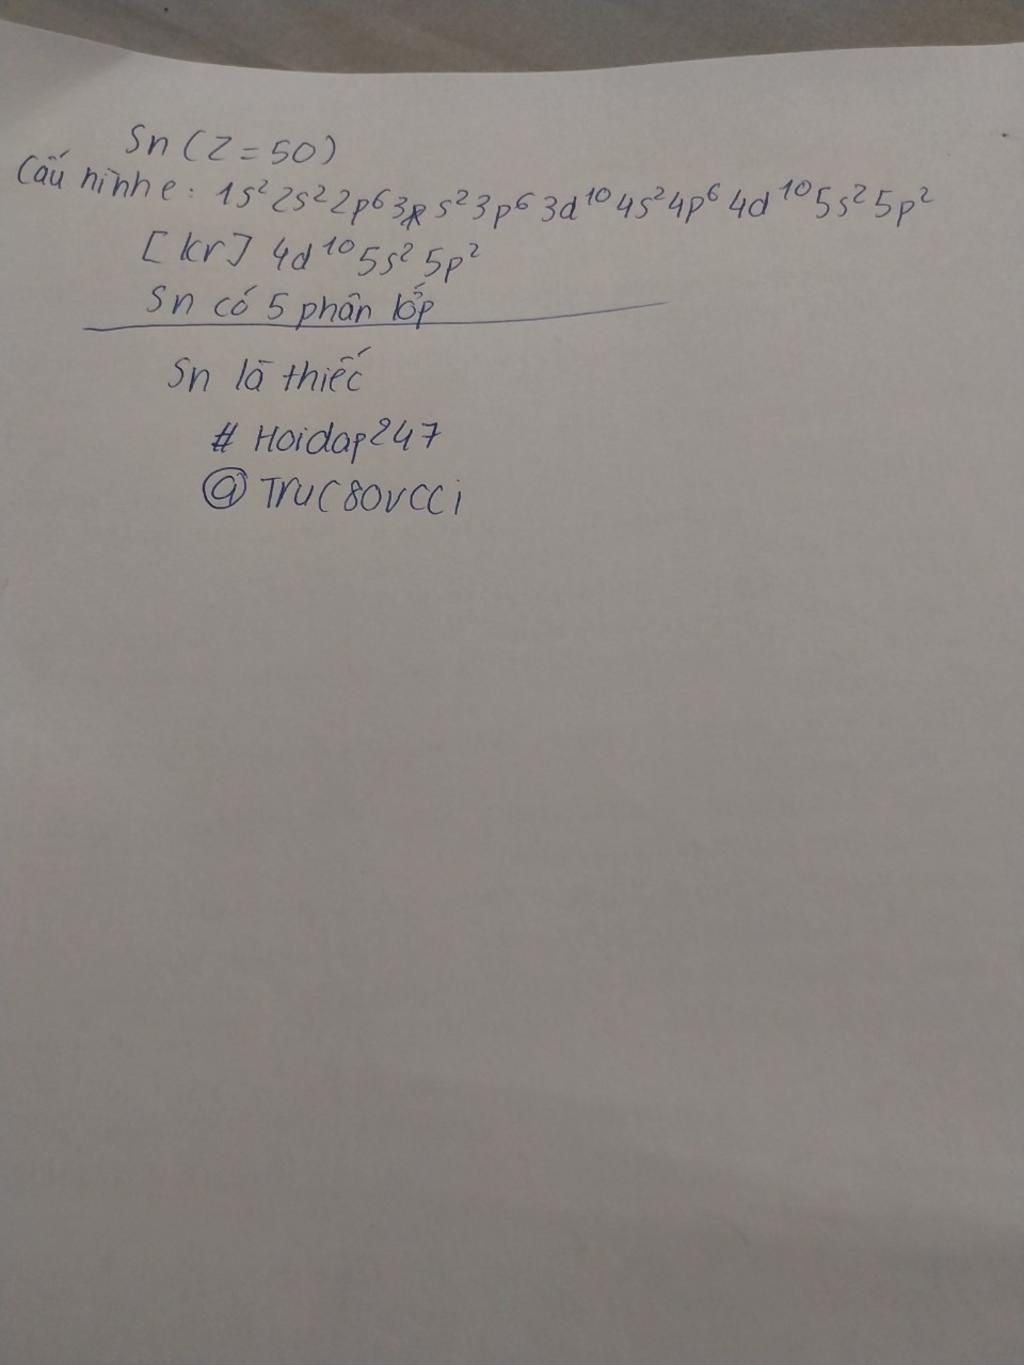 Sn (Z = 50)
Cấu hình e: 1s² 2s² 2p⁶ 3s² 3p⁶ 3d¹⁰ 4s² 4p⁶ 4d¹⁰ 5s² 5p²
[Kr] 4d¹⁰ 5s² 5p²
Sn có 5 phân lớp
Sn là thiếc
# Hoidap247
@ Truc80vcci